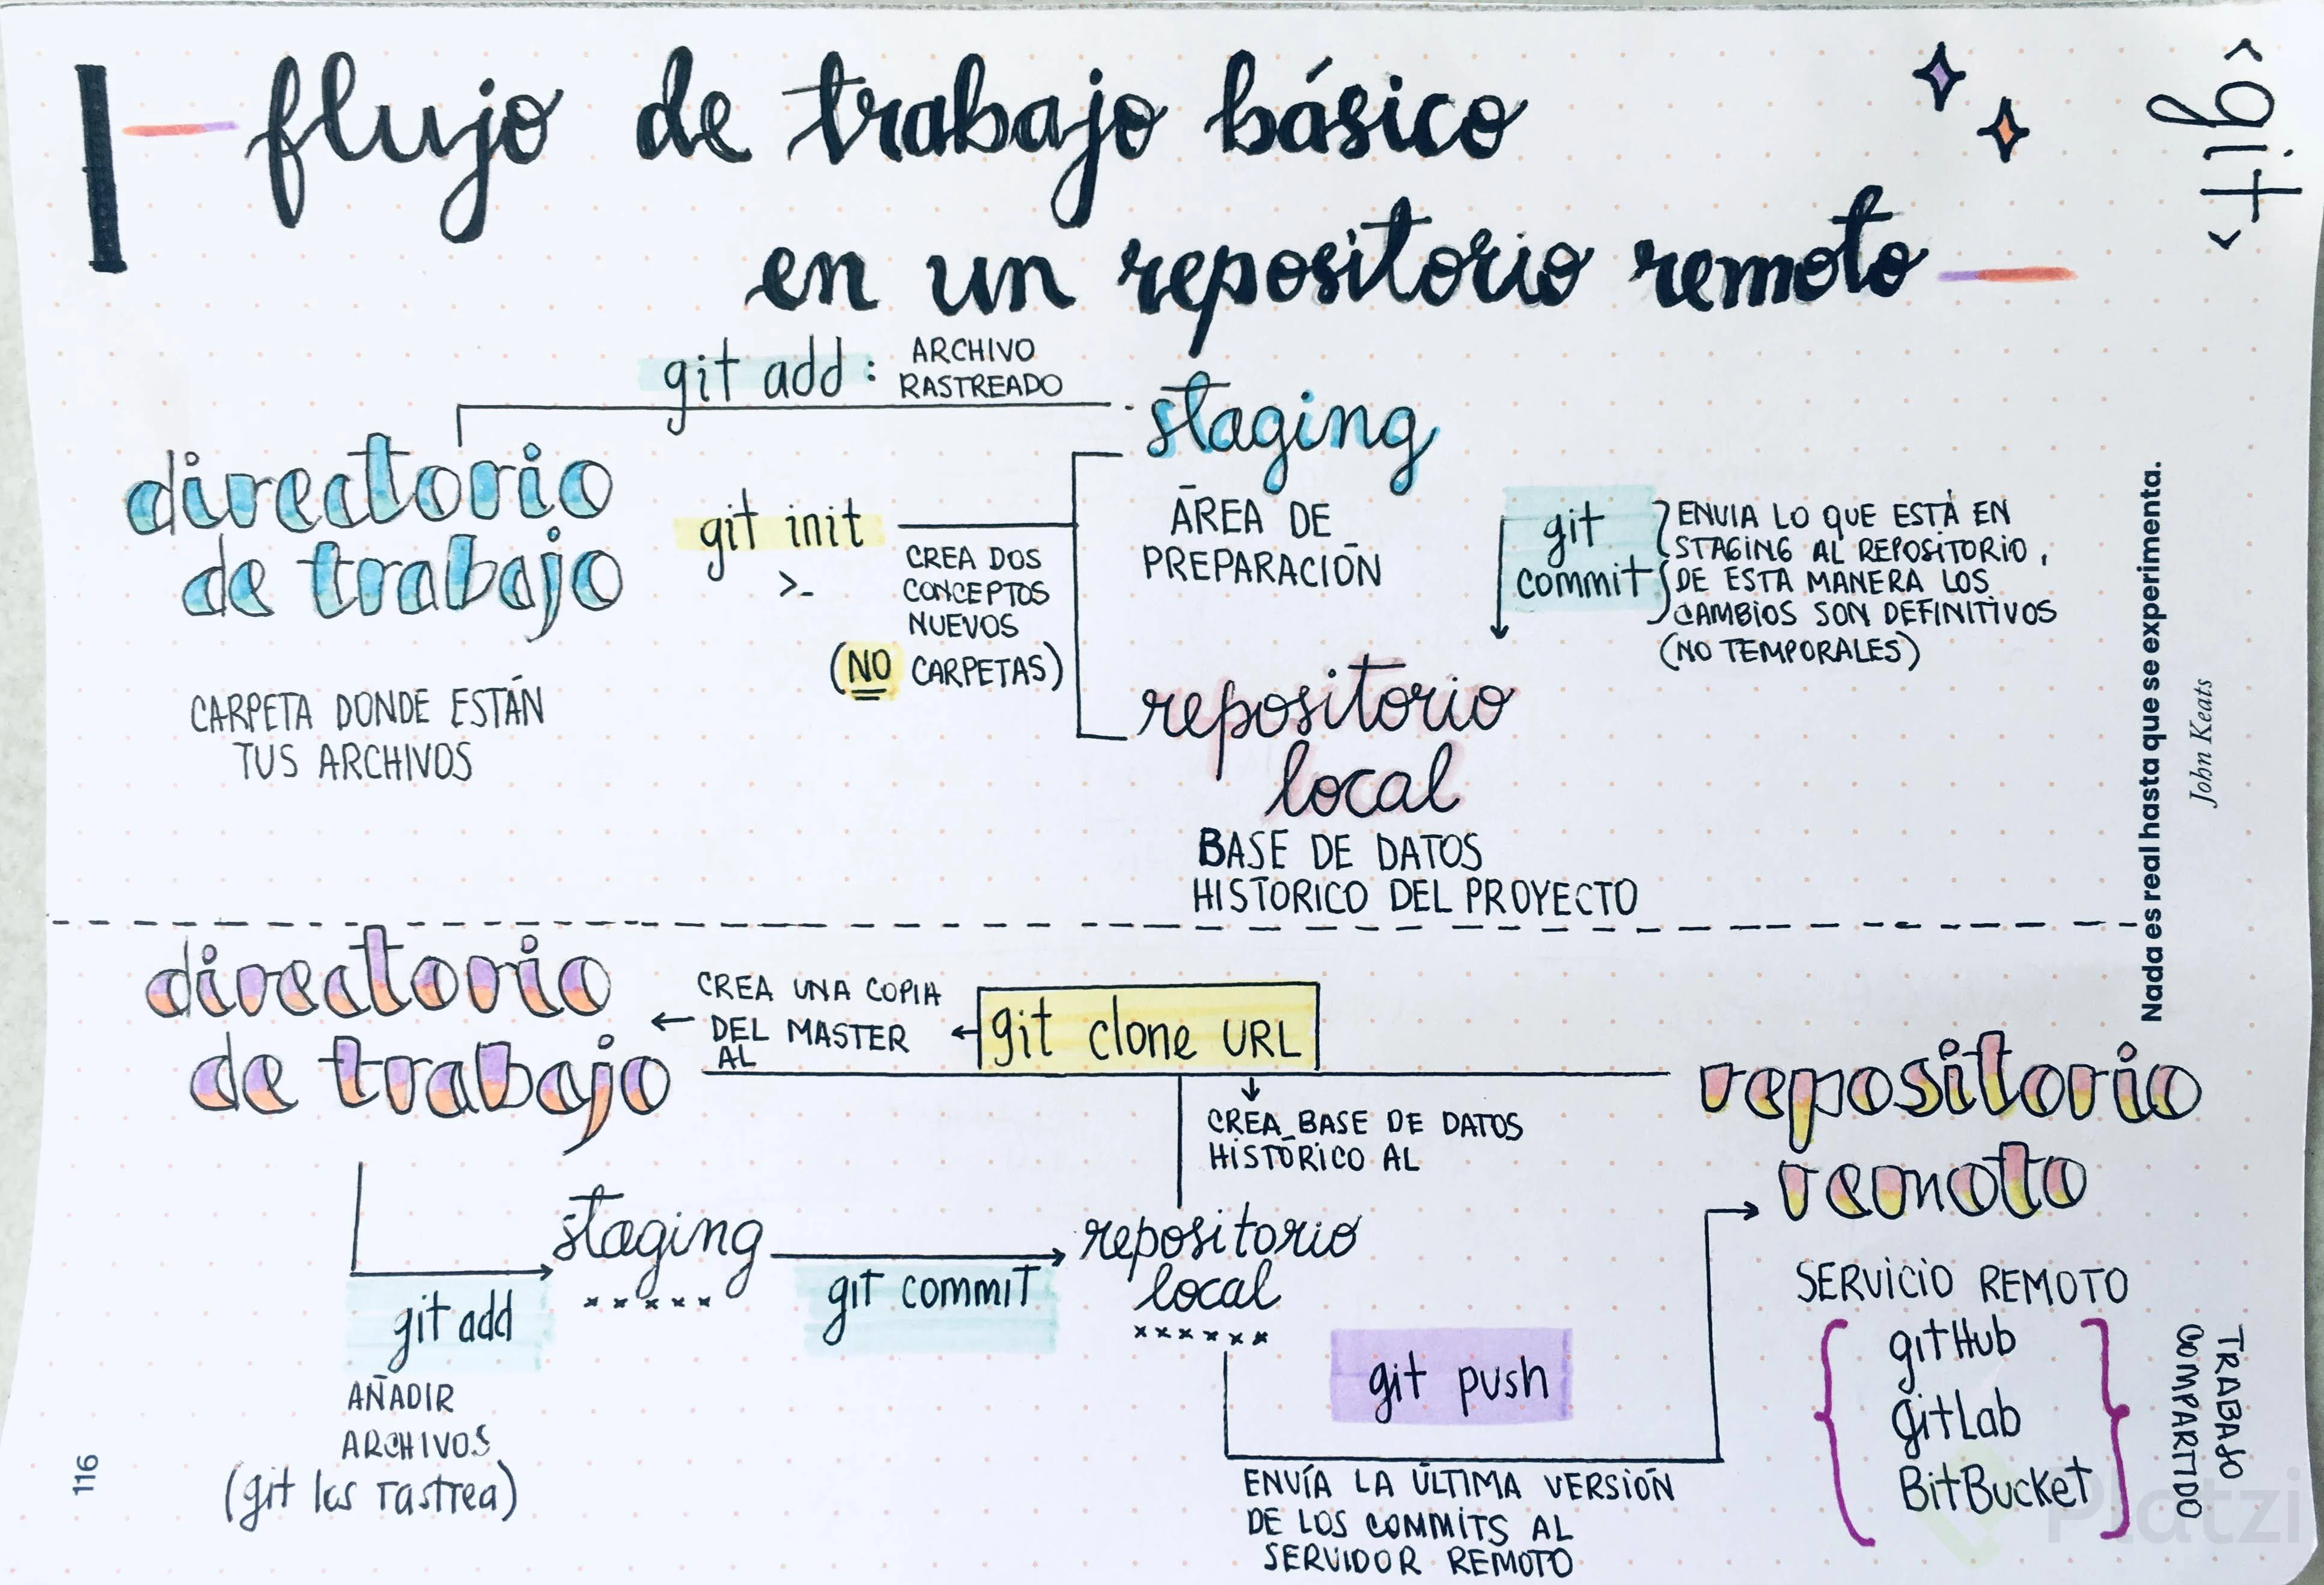 flujo de trabajo básico
en un repositorio remoto
<git>
git add: ARCHIVO
RASTREADO
directorio
de trabajo
CARPETA DONDE ESTÁN
TUS ARCHIVOS
git init
>_
CREA DOS
CONCEPTOS
NUEVOS
(NO CARPETAS)
staging
ÁREA DE
PREPARACIÓN
git
commit
ENVIA LO QUE ESTÁ EN
STAGING AL REPOSITORIO,
DE ESTA MANERA LOS
CAMBIOS SON DEFINITIVOS
(NO TEMPORALES)
repositorio
local
BASE DE DATOS
HISTORICO DEL PROYECTO
Nada es real hasta que se experimenta.
John Keats
directorio
de trabajo
CREA UNA COPIA
DEL MASTER
AL
git clone URL
CREA BASE DE DATOS
HISTÓRICO AL
repositorio
remoto
staging
git commit
repositorio
local
git add
AÑADIR
ARCHIVOS
(git los rastrea)
git push
ENVÍA LA ÚLTIMA VERSIÓN
DE LOS COMMITS AL
SERVIDOR REMOTO
SERVICIO REMOTO
gitHub
gitLab
BitBucket
TRABAJO
COMPARTIDO
116
Platzi